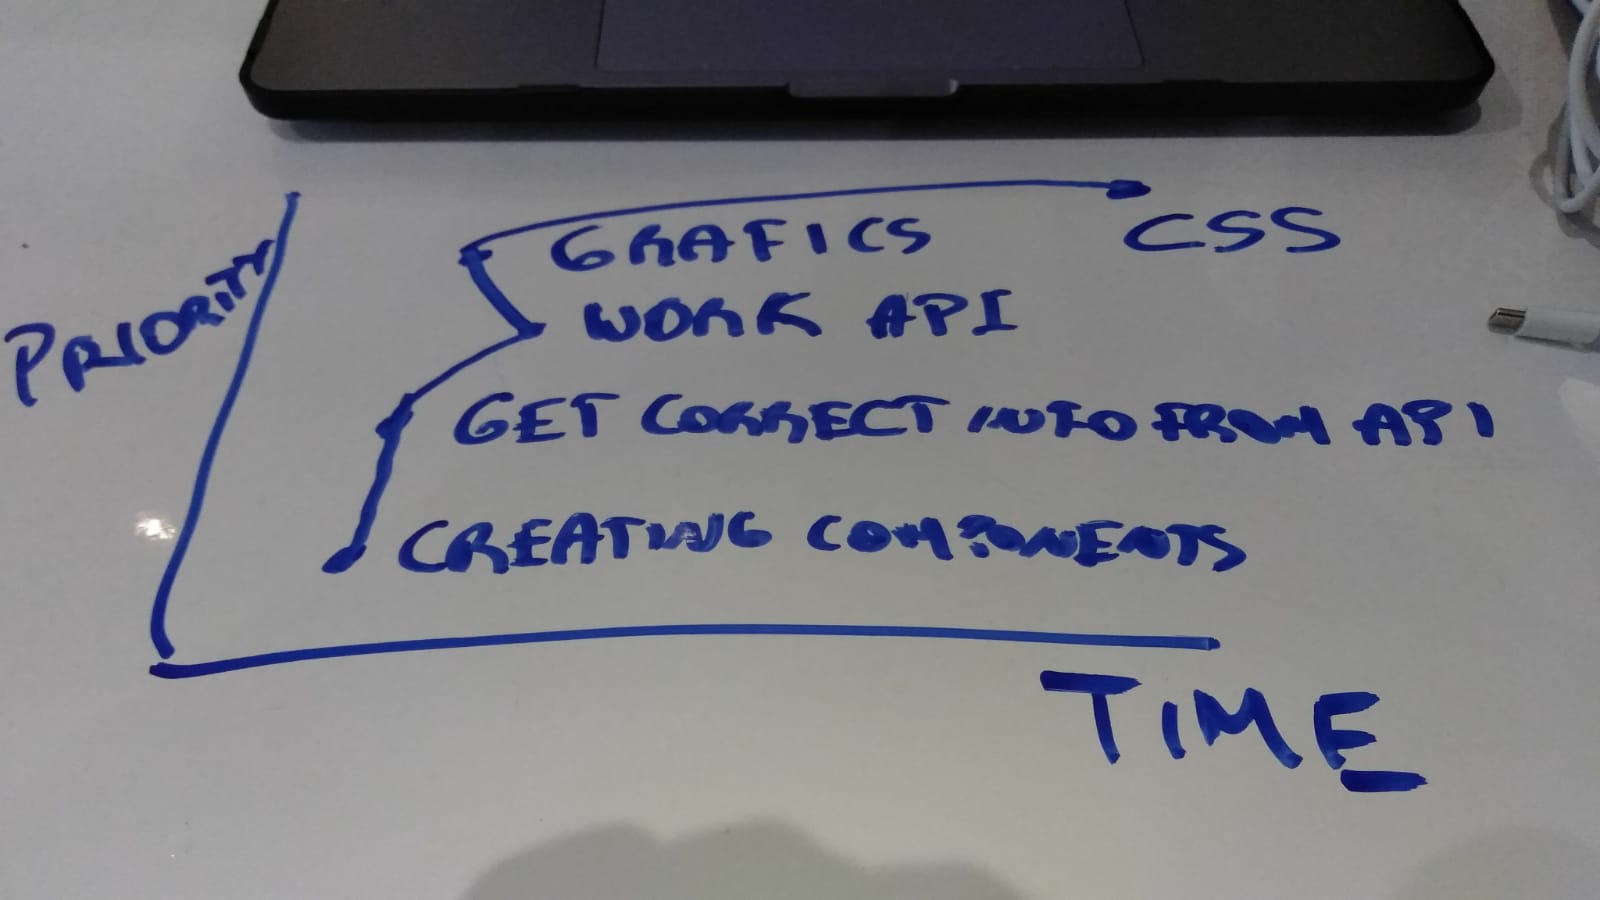 PRIORITY
GRAFICS CSS
WORK API
GET CORRECT INFO FROM API
CREATING COMPONENTS
TIME